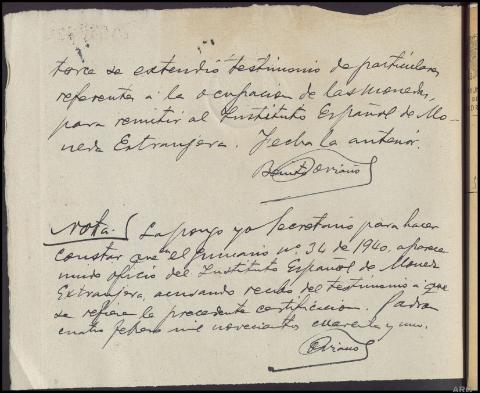 torce se extendió testimonio de particulares
referentes a la ocupación de las monedas,
para remitir al Instituto Español de Mo-
neda Extranjera. Fecha la anterior.
Benito Soriano
Nota. La pongo yo Secretario para hacer
constar que el sumario nº 34 de 1940, aparece
unido oficio del Instituto Español de Moneda
Extranjera, acusando recibo del testimonio a que
se refiere la precedente certificacion.
cuatro febrero mil novecientos cuarenta y uno.
Soriano